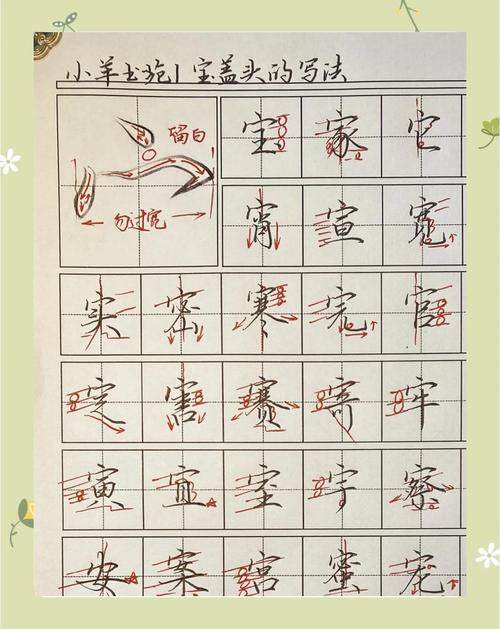 小羊书苑|宝盖头的写法
留白
勿过宽
宝 家 它
宵 宣 宽
实 密 寒 完 官
定 害 赛 寄 牢
寅 宜 室 宇 察
安 案 宫 蜜 宠